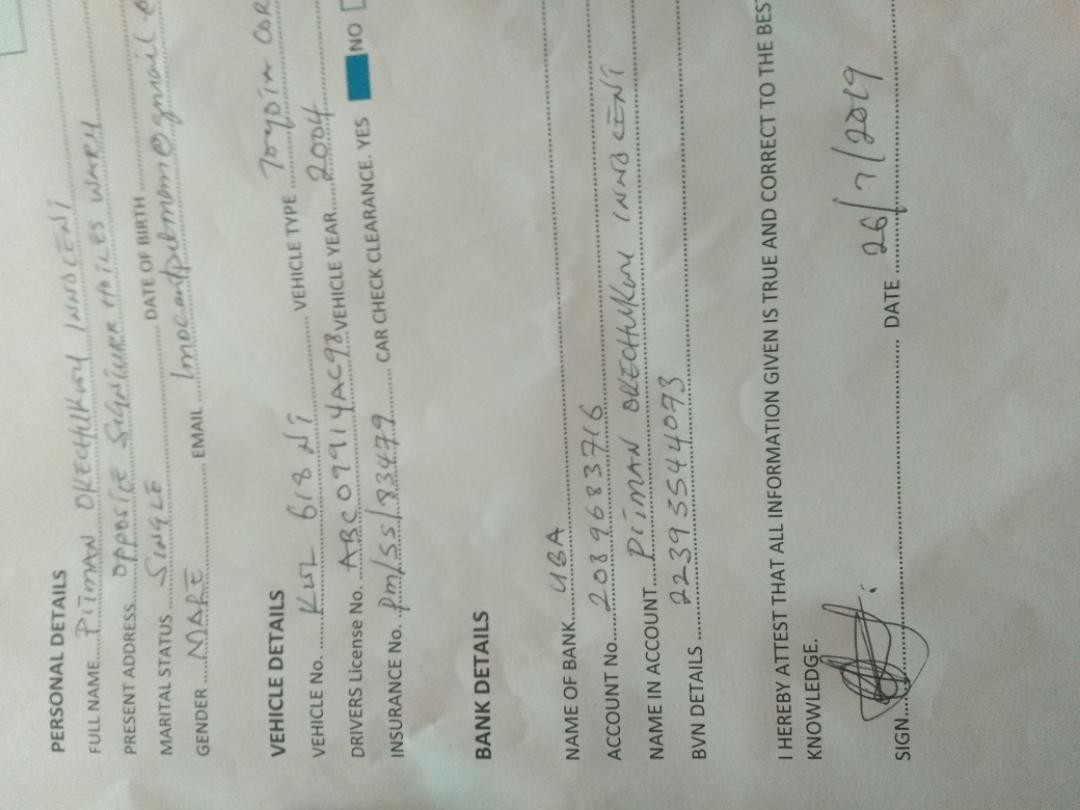 PERSONAL DETAILS
FULL NAME PITMAN OKECHUKWU INNOCENT
PRESENT ADDRESS OPPOSITE SIGNATURE HOTLES WARRI
MARITAL STATUS SINGLE DATE OF BIRTH
GENDER MALE EMAIL
VEHICLE DETAILS
VEHICLE No. KWL 618 NT VEHICLE TYPE TOYOTA COR
DRIVERS License No. VEHICLE YEAR 2004
INSURANCE No. CAR CHECK CLEARANCE. YES NO
BANK DETAILS
NAME OF BANK UBA
ACCOUNT No. 2089683716
NAME IN ACCOUNT PITMAN OKECHUKWU INNOCENT
BVN DETAILS 22395544073
I HEREBY ATTEST THAT ALL INFORMATION GIVEN IS TRUE AND CORRECT TO THE BEST
KNOWLEDGE.
SIGN DATE 26/7/2019